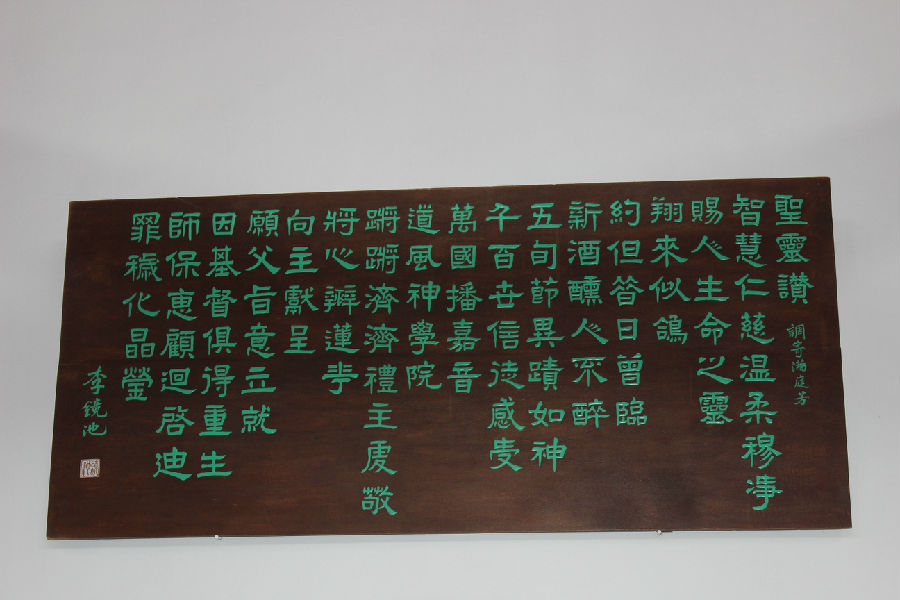 聖靈讃 調寄滿庭芳
智慧仁慈温柔穆淨
賜人生命之靈
翔來似鴿
約但昝日曾臨
新酒醺人不醉
五旬節異蹟如神
千百世信徒感受
萬國播嘉音
道風神學院
蹡蹡濟濟禮主虔敬
將心瓣蓮半
向主獻呈
願父旨意立就
因基督俱得重生
師保恵顧迴啓迪
罪穢化晶瑩
李鏡池